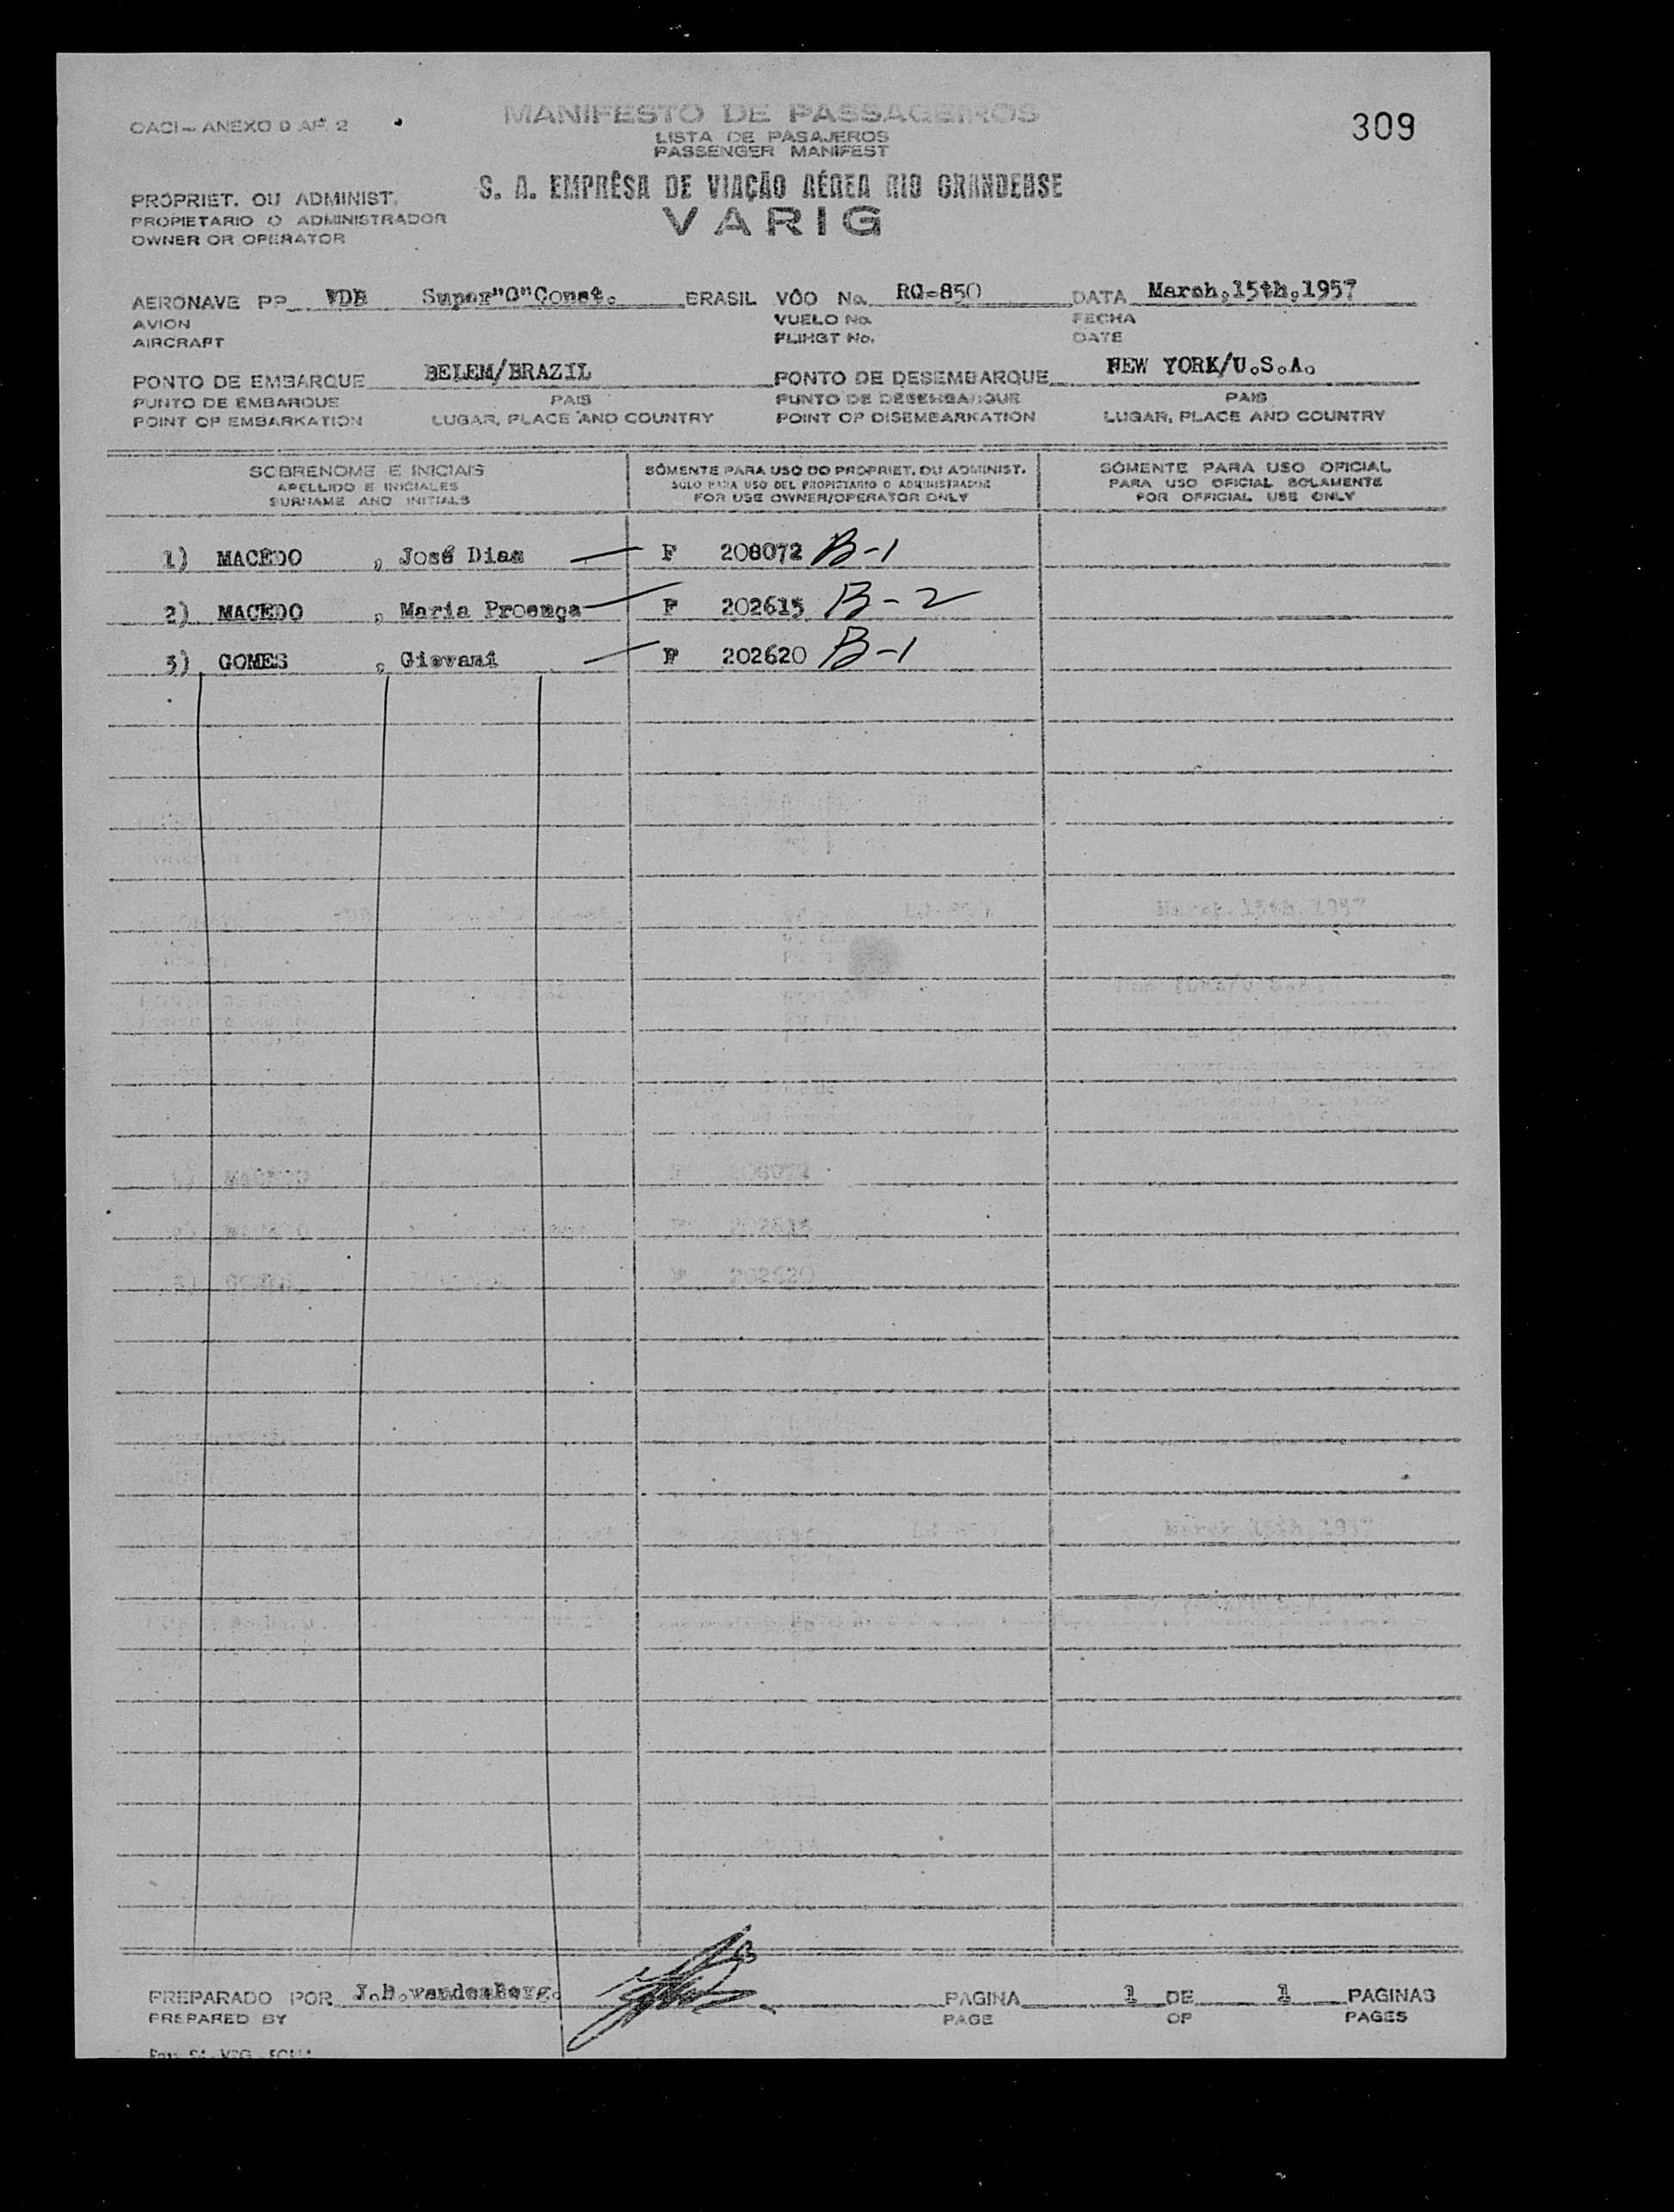 OACI - ANEXO 9 AP. 2
MANIFESTO DE PASSAGEIROS
LISTA DE PASAJEROS
PASSENGER MANIFEST
309
PROPRIET. OU ADMINIST.
PROPIETARIO O ADMINISTRADOR
OWNER OR OPERATOR
S. A. EMPRÊSA DE VIAÇÃO AÉREA RIO GRANDENSE
VARIG
AERONAVE PP VDB Super"G"Const. BRASIL VÔO No. RG-850 DATA March,15th,1957
AVION VUELO No. FECHA
AIRCRAFT FLIHGT No. DATE
PONTO DE EMBARQUE BELEM/BRAZIL PONTO DE DESEMBARQUE NEW YORK/U.S.A.
PUNTO DE EMBARQUE PAIS PUNTO DE DESEMBARQUE PAIS
POINT OF EMBARKATION LUGAR, PLACE AND COUNTRY POINT OF DISEMBARKATION LUGAR, PLACE AND COUNTRY
SOBRENOME E INICIAIS SÓMENTE PARA USO DO PROPRIET. OU ADMINIST. SÓMENTE PARA USO OFICIAL
APELLIDO E INICIALES SOLO PARA USO DEL PROPIETARIO O ADMINISTRADOR PARA USO OFICIAL SOLAMENTE
SURNAME AND INITIALS FOR USE OWNER/OPERATOR ONLY FOR OFFICIAL USE ONLY
1) MACEDO , José Dias F 208072 B-1
2) MACEDO , Maria Proença F 202615 B-2
3) GOMES , Giovani F 202620 B-1
PREPARADO POR J.B.vandenBerg. PAGINA 1 DE 1 PAGINAS
PREPARED BY PAGE OF PAGES